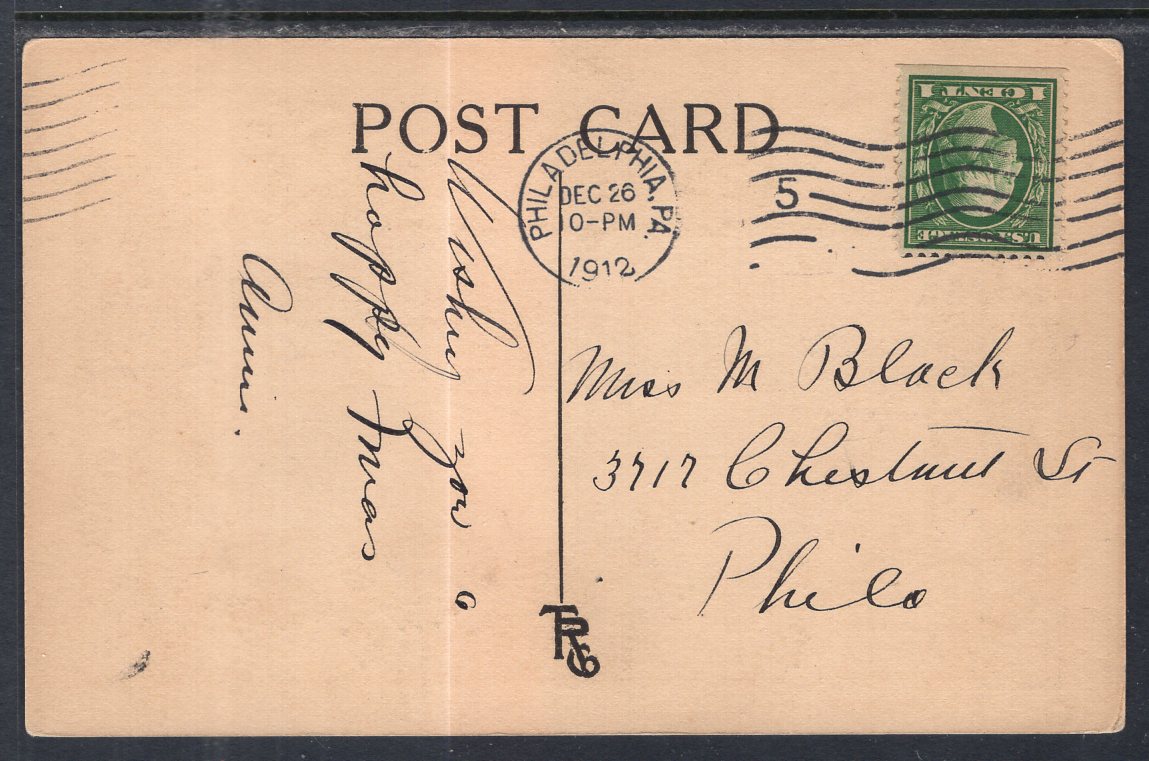 POST CARD
PHILADELPHIA, PA.
DEC 26
10-PM
1912
5
U.S. POSTAGE
1 CENT 1
Wishing you a
happy Xmas
Annie.
Miss M Black
3717 Chestnut St
Phila
TRS